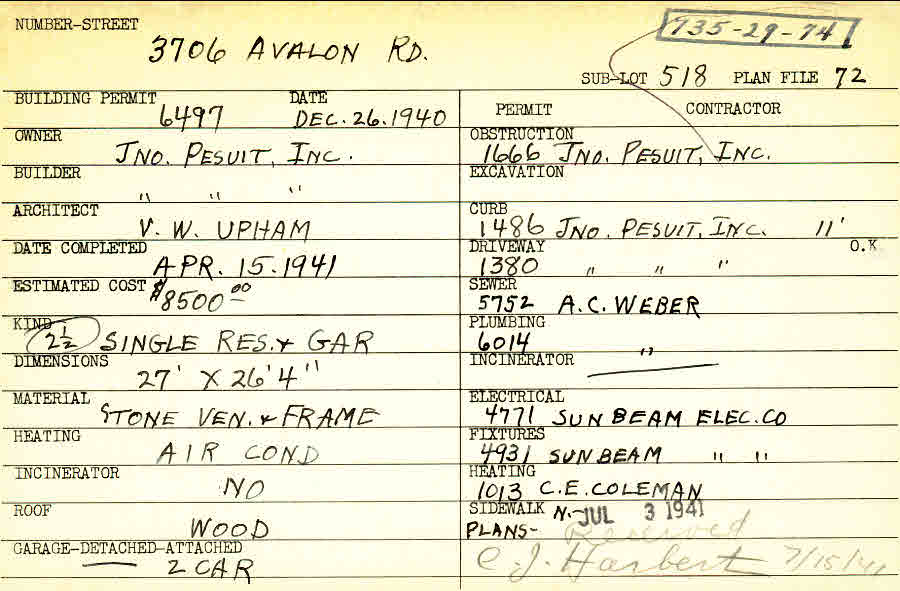 NUMBER-STREET
3706 AVALON RD.
735-29-74
SUB-LOT 518 PLAN FILE 72
BUILDING PERMIT DATE
6497 DEC. 26. 1940
OWNER
JNO. PESUIT, INC.
BUILDER
" " "
ARCHITECT
V. W. UPHAM
DATE COMPLETED
APR. 15. 1941
ESTIMATED COST $8500.00
KIND
2½ SINGLE RES. & GAR
DIMENSIONS
27' X 26' 4"
MATERIAL
STONE VEN. & FRAME
HEATING
AIR COND
INCINERATOR
NO
ROOF
WOOD
GARAGE-DETACHED-ATTACHED
2 CAR
PERMIT CONTRACTOR
OBSTRUCTION
1666 JNO. PESUIT, INC.
EXCAVATION
CURB
1486 JNO. PESUIT, INC. 11'
DRIVEWAY O.K
1380 " " "
SEWER
5752 A.C. WEBER
PLUMBING
6014 "
INCINERATOR
ELECTRICAL
4771 SUNBEAM ELEC. CO
FIXTURES
4931 SUNBEAM " "
HEATING
1013 C.E. COLEMAN
SIDEWALK N.- JUL 3 1941
PLANS- Received
C. J. Harbert 7/15/41